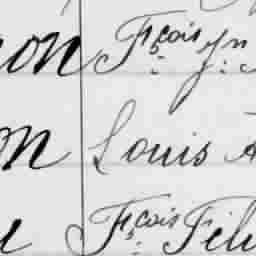 on Fçois Jn
on Louis A
e Fçois Féli